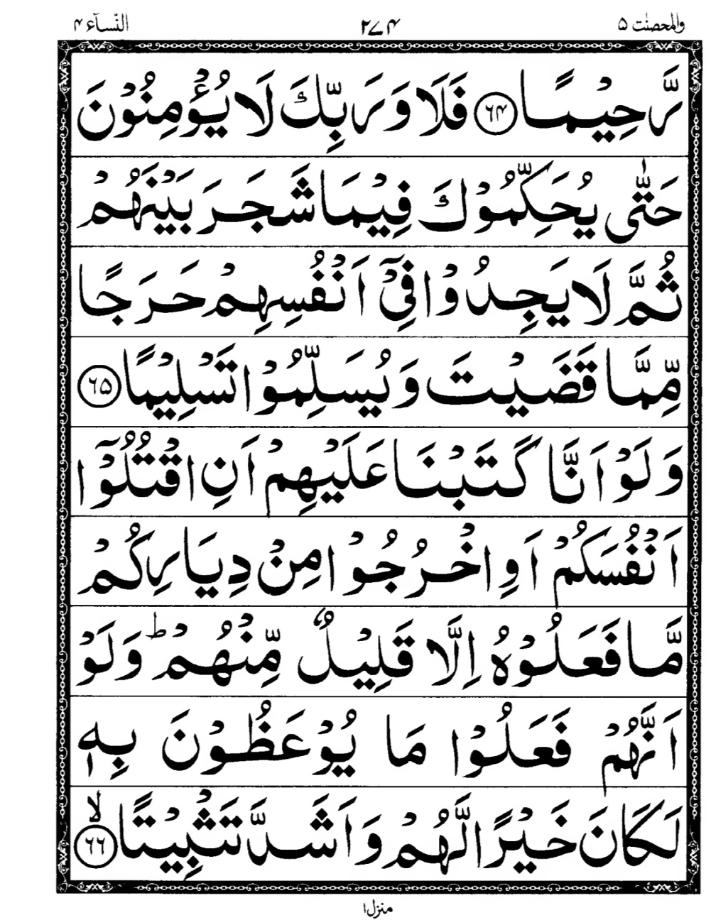 والمحصنٰت ٥ ٢٧٤ النّسآء ٤
رَّحِيْمًا ﴿٦٤﴾ فَلَا وَرَبِّكَ لَا يُؤْمِنُوْنَ
حَتّٰى يُحَكِّمُوْكَ فِيْمَا شَجَرَ بَيْنَهُمْ
ثُمَّ لَا يَجِدُوْا فِيْٓ اَنْفُسِهِمْ حَرَجًا
مِّمَّا قَضَيْتَ وَيُسَلِّمُوْا تَسْلِيْمًا ﴿٦٥﴾
وَلَوْ اَنَّا كَتَبْنَا عَلَيْهِمْ اَنِ اقْتُلُوْٓا
اَنْفُسَكُمْ اَوِ اخْرُجُوْا مِنْ دِيَارِكُمْ
مَّا فَعَلُوْهُ اِلَّا قَلِيْلٌ مِّنْهُمْ ؕ وَلَوْ
اَنَّهُمْ فَعَلُوْا مَا يُوْعَظُوْنَ بِهٖ
لَكَانَ خَيْرًا لَّهُمْ وَاَشَدَّ تَثْبِيْتًا ۙ﴿٦٦﴾
منزل ١